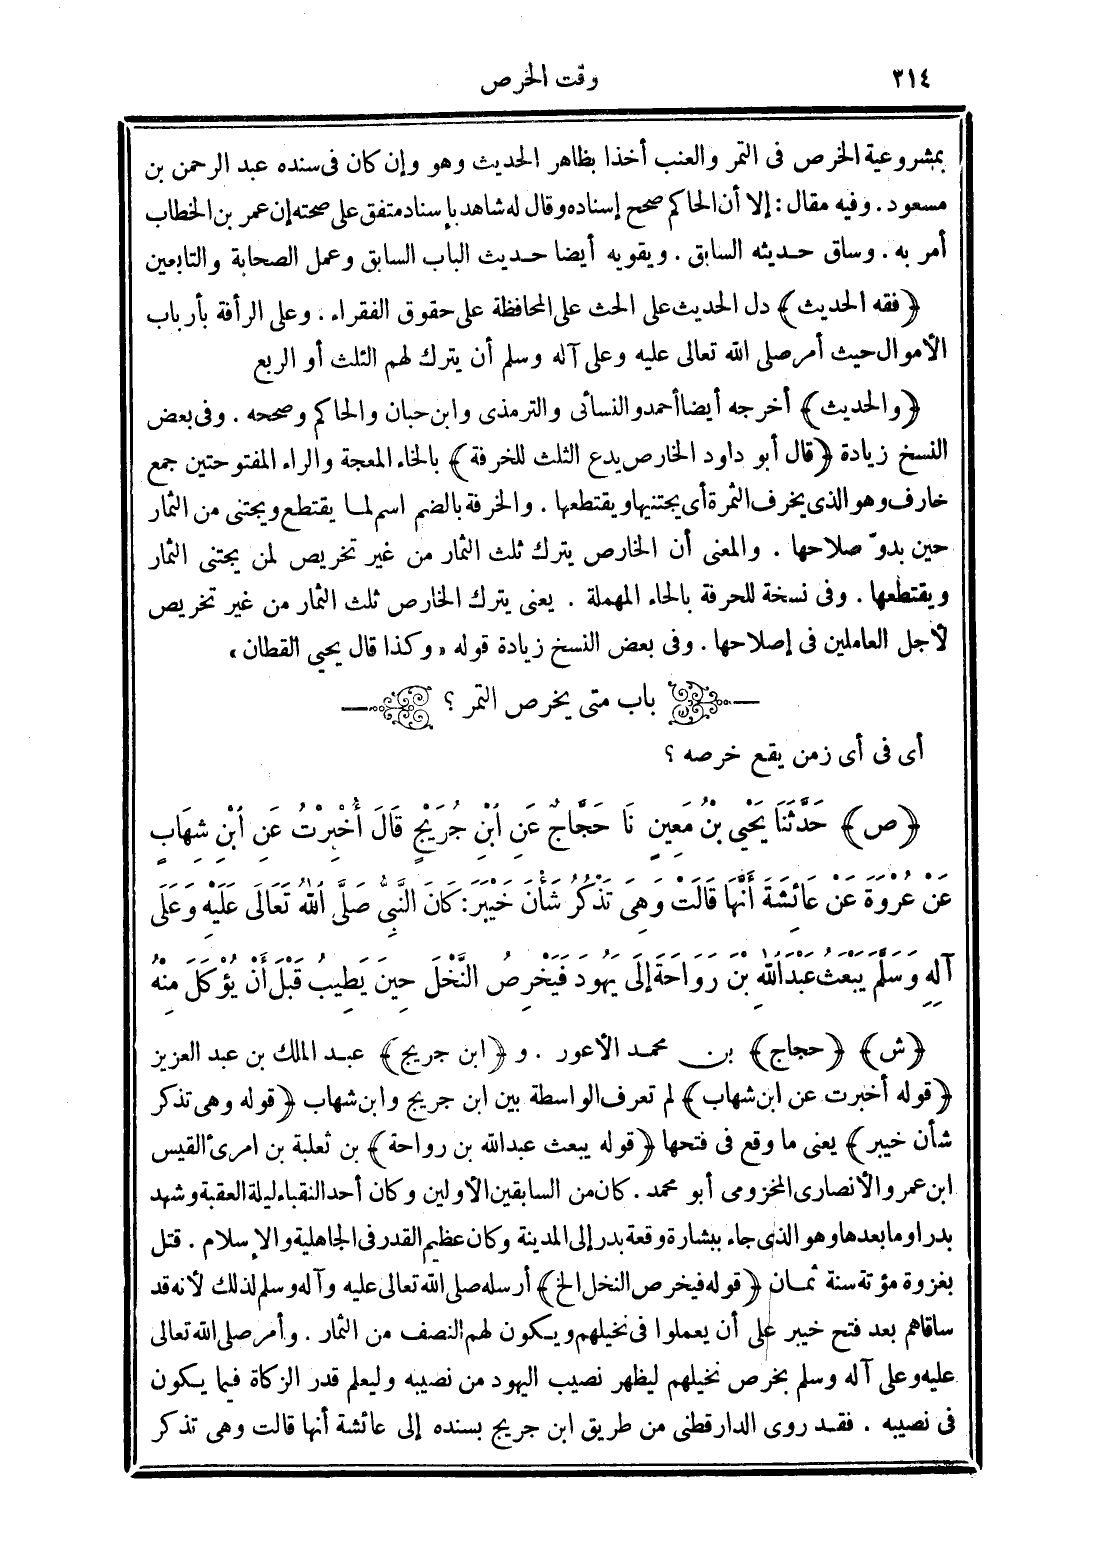 ٣١٤
وقت الخرص
بمشروعية الخرص فى التمر والعنب أخذا بظاهر الحديث وهو وإن كان فى سنده عبد الرحمن بن
مسعود . وفيه مقال : إلا أن الحاكم صحح إسناده وقال له شاهد بإسناد متفق على صحته إن عمر بن الخطاب
أمر به . وساق حديثه السابق . ويقويه أيضا حديث الباب السابق وعمل الصحابة والتابعين
﴿فقه الحديث﴾ دل الحديث على الحث على المحافظة على حقوق الفقراء . وعلى الرأفة بأرباب
الأموال حيث أمر صلى الله تعالى عليه وعلى آله وسلم أن يترك لهم الثلث أو الربع
﴿والحديث﴾ أخرجه أيضا أحمد والنسائى والترمذى وابن حبان والحاكم وصححه . وفى بعض
النسخ زيادة ﴿قال أبو داود الخارص يدع الثلث للخرفة﴾ بالخاء المعجة والراء المفتوحتين جمع
خارف وهو الذى يخرف الثمرة أى يجتنيها ويقتطعها . والخرفة بالضم اسم لما يقتطع ويجتنى من الثمار
حين بدوّ صلاحها . والمعنى أن الخارص يترك ثلث الثمار من غير تخريص لمن يجتنى الثمار
ويقتطعها . وفى نسخة للحرفة بالحاء المهملة . يعنى يترك الخارص ثلث الثمار من غير تخريص
لأجل العاملين فى إصلاحها . وفى بعض النسخ زيادة قوله «وكذا قال يحيى القطان»
باب متى يخرص التمر ؟
أى فى أى زمن يقع خرصه ؟
﴿ص﴾ حَدَّثَنَا يَحْيَى بْنُ مَعِينٍ نَا حَجَّاجٌ عَنِ ابْنِ جُرَيْجٍ قَالَ أُخْبِرْتُ عَنِ ابْنِ شِهَابٍ
عَنْ عُرْوَةَ عَنْ عَائِشَةَ أَنَّهَا قَالَتْ وَهِىَ تَذْكُرُ شَأْنَ خَيْبَرَ : كَانَ النَّبِىُّ صَلَّى اللهُ تَعَالَى عَلَيْهِ وَعَلَى
آلِهِ وَسَلَّمَ يَبْعَثُ عَبْدَ اللهِ بْنَ رَوَاحَةَ إِلَى يَهُودَ فَيَخْرِصُ النَّخْلَ حِينَ يَطِيبُ قَبْلَ أَنْ يُؤْكَلَ مِنْهُ
﴿ش﴾ ﴿حجاج﴾ بن محمد الأعور . و ﴿ابن جريج﴾ عبد الملك بن عبد العزيز
﴿قوله أخبرت عن ابن شهاب﴾ لم تعرف الواسطة بين ابن جريج وابن شهاب ﴿قوله وهى تذكر
شأن خيبر﴾ يعنى ما وقع فى فتحها ﴿قوله يبعث عبد الله بن رواحة﴾ بن ثعلبة بن امرئ القيس
ابن عمرو الأنصارى المخزومى أبو محمد . كان من السابقين الأولين وكان أحد النقباء ليلة العقبة وشهد
بدرا وما بعدها وهو الذى جاء ببشارة وقعة بدر إلى المدينة وكان عظيم القدر فى الجاهلية والإسلام . قتل
بغزوة مؤتة سنة ثمان ﴿قوله فيخرص النخل الخ﴾ أرسله صلى الله تعالى عليه وآله وسلم لذلك لأنه قد
ساقاهم بعد فتح خيبر على أن يعملوا فى نخيلهم ويكون لهم النصف من الثمار . وأمر صلى الله تعالى
عليه وعلى آله وسلم بخرص نخيلهم ليظهر نصيب اليهود من نصيبه وليعلم قدر الزكاة فيما يكون
فى نصيبه . فقد روى الدارقطنى من طريق ابن جريج بسنده إلى عائشة أنها قالت وهى تذكر